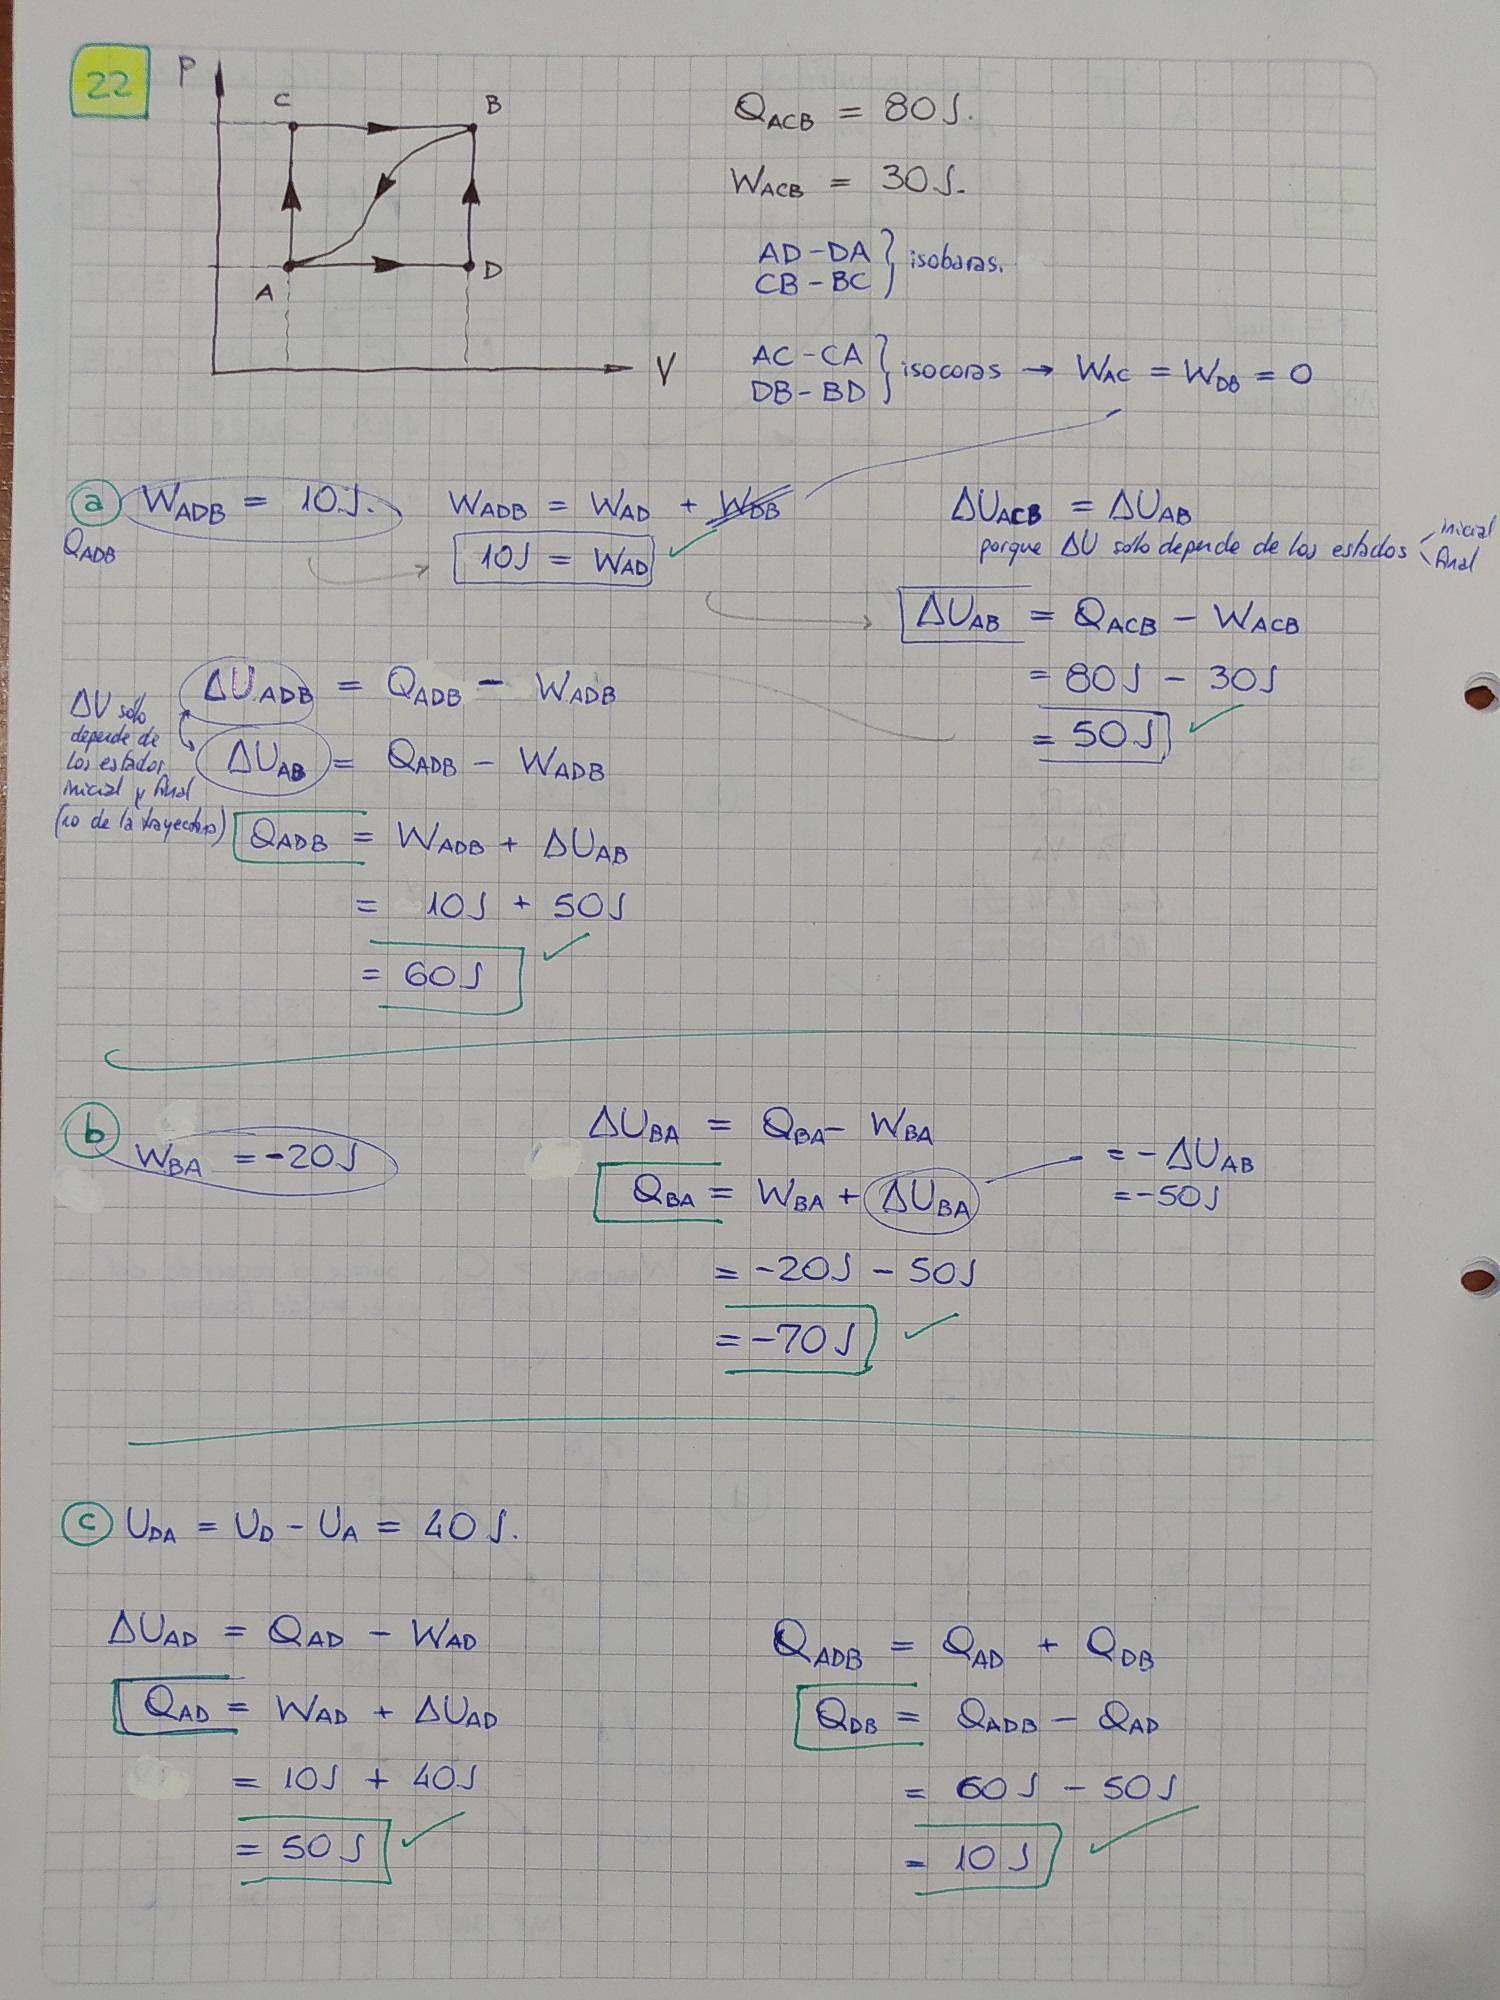 22
P
C
B
A
D
V
Q_ACB = 80 J.
W_ACB = 30 J.
AD - DA
CB - BC } isobaras.
AC - CA
DB - BD } isocoras → W_AC = W_DB = 0
a W_ADB = 10 J.
Q_ADB
W_ADB = W_AD + W_DB
10 J = W_AD ✓
ΔU_ACB = ΔU_AB
porque ΔU solo depende de los estados inicial final
ΔU_AB = Q_ACB - W_ACB
= 80 J - 30 J
= 50 J ✓
ΔU_ADB = Q_ADB - W_ADB
ΔU solo
depende de
los estados
inicial y final
(no de la trayectoria)
ΔU_AB = Q_ADB - W_ADB
Q_ADB = W_ADB + ΔU_AB
= 10 J + 50 J
= 60 J ✓
b W_BA = -20 J
ΔU_BA = Q_BA - W_BA
Q_BA = W_BA + ΔU_BA
= -ΔU_AB
= -50 J
= -20 J - 50 J
= -70 J ✓
c U_DA = U_D - U_A = 40 J.
ΔU_AD = Q_AD - W_AD
Q_AD = W_AD + ΔU_AD
= 10 J + 40 J
= 50 J ✓
Q_ADB = Q_AD + Q_DB
Q_DB = Q_ADB - Q_AD
= 60 J - 50 J
= 10 J ✓